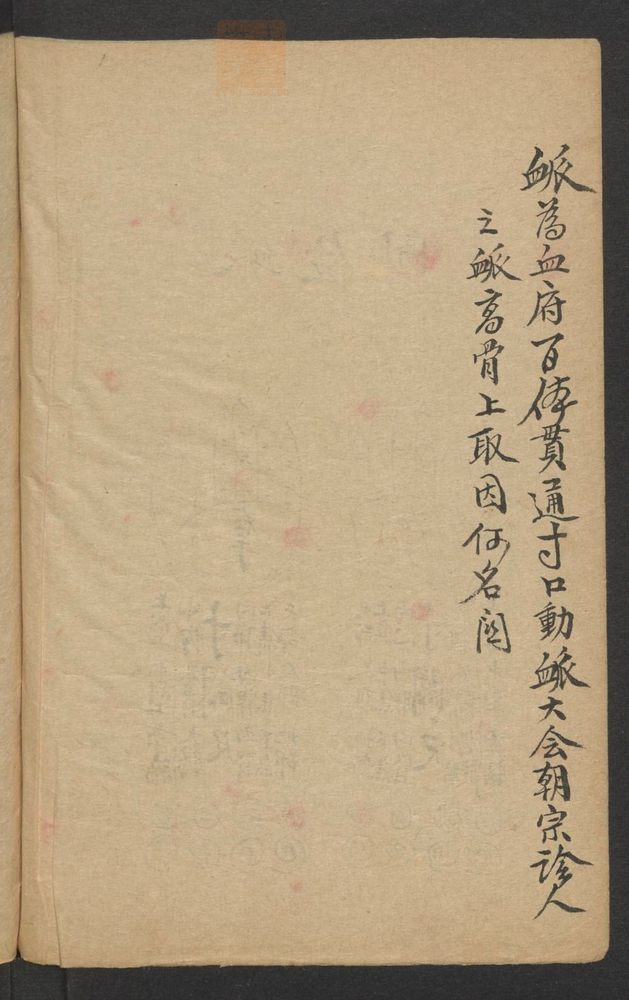 衇為血府百体貫通寸口動衇大会朝宗診人
之衇高骨上取因何名関